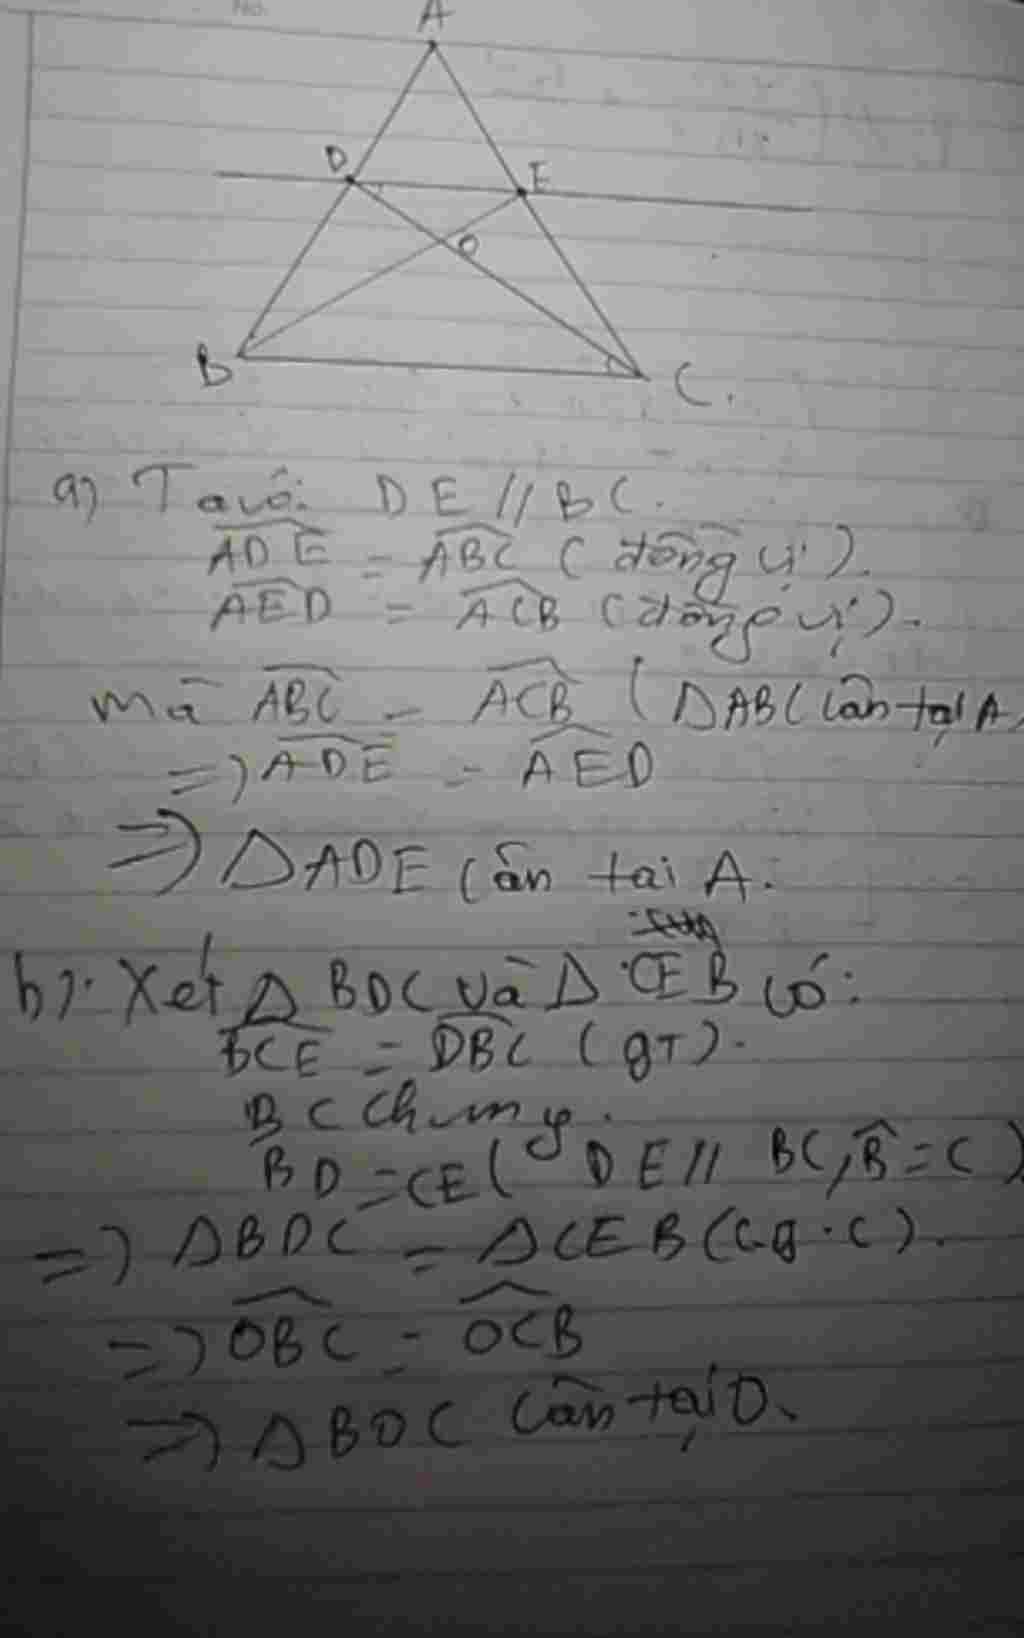 No.
A
D
E
O
B
C.
a) Ta có: DE // BC.
ADE = ABC (đồng vị).
AED = ACB (đồng vị).
mà ABC = ACB (ΔABC cân tại A)
=> ADE = AED
=> ΔADE cân tại A.
b) Xét Δ BDC và Δ CEB có:
BCE = DBC (gT).
BC chung.
BD = CE ( DE // BC, B̂ = C )
=> ΔBDC = ΔCEB (c.g.c).
=> OBC = OCB
=> ΔBOC cân tại O.